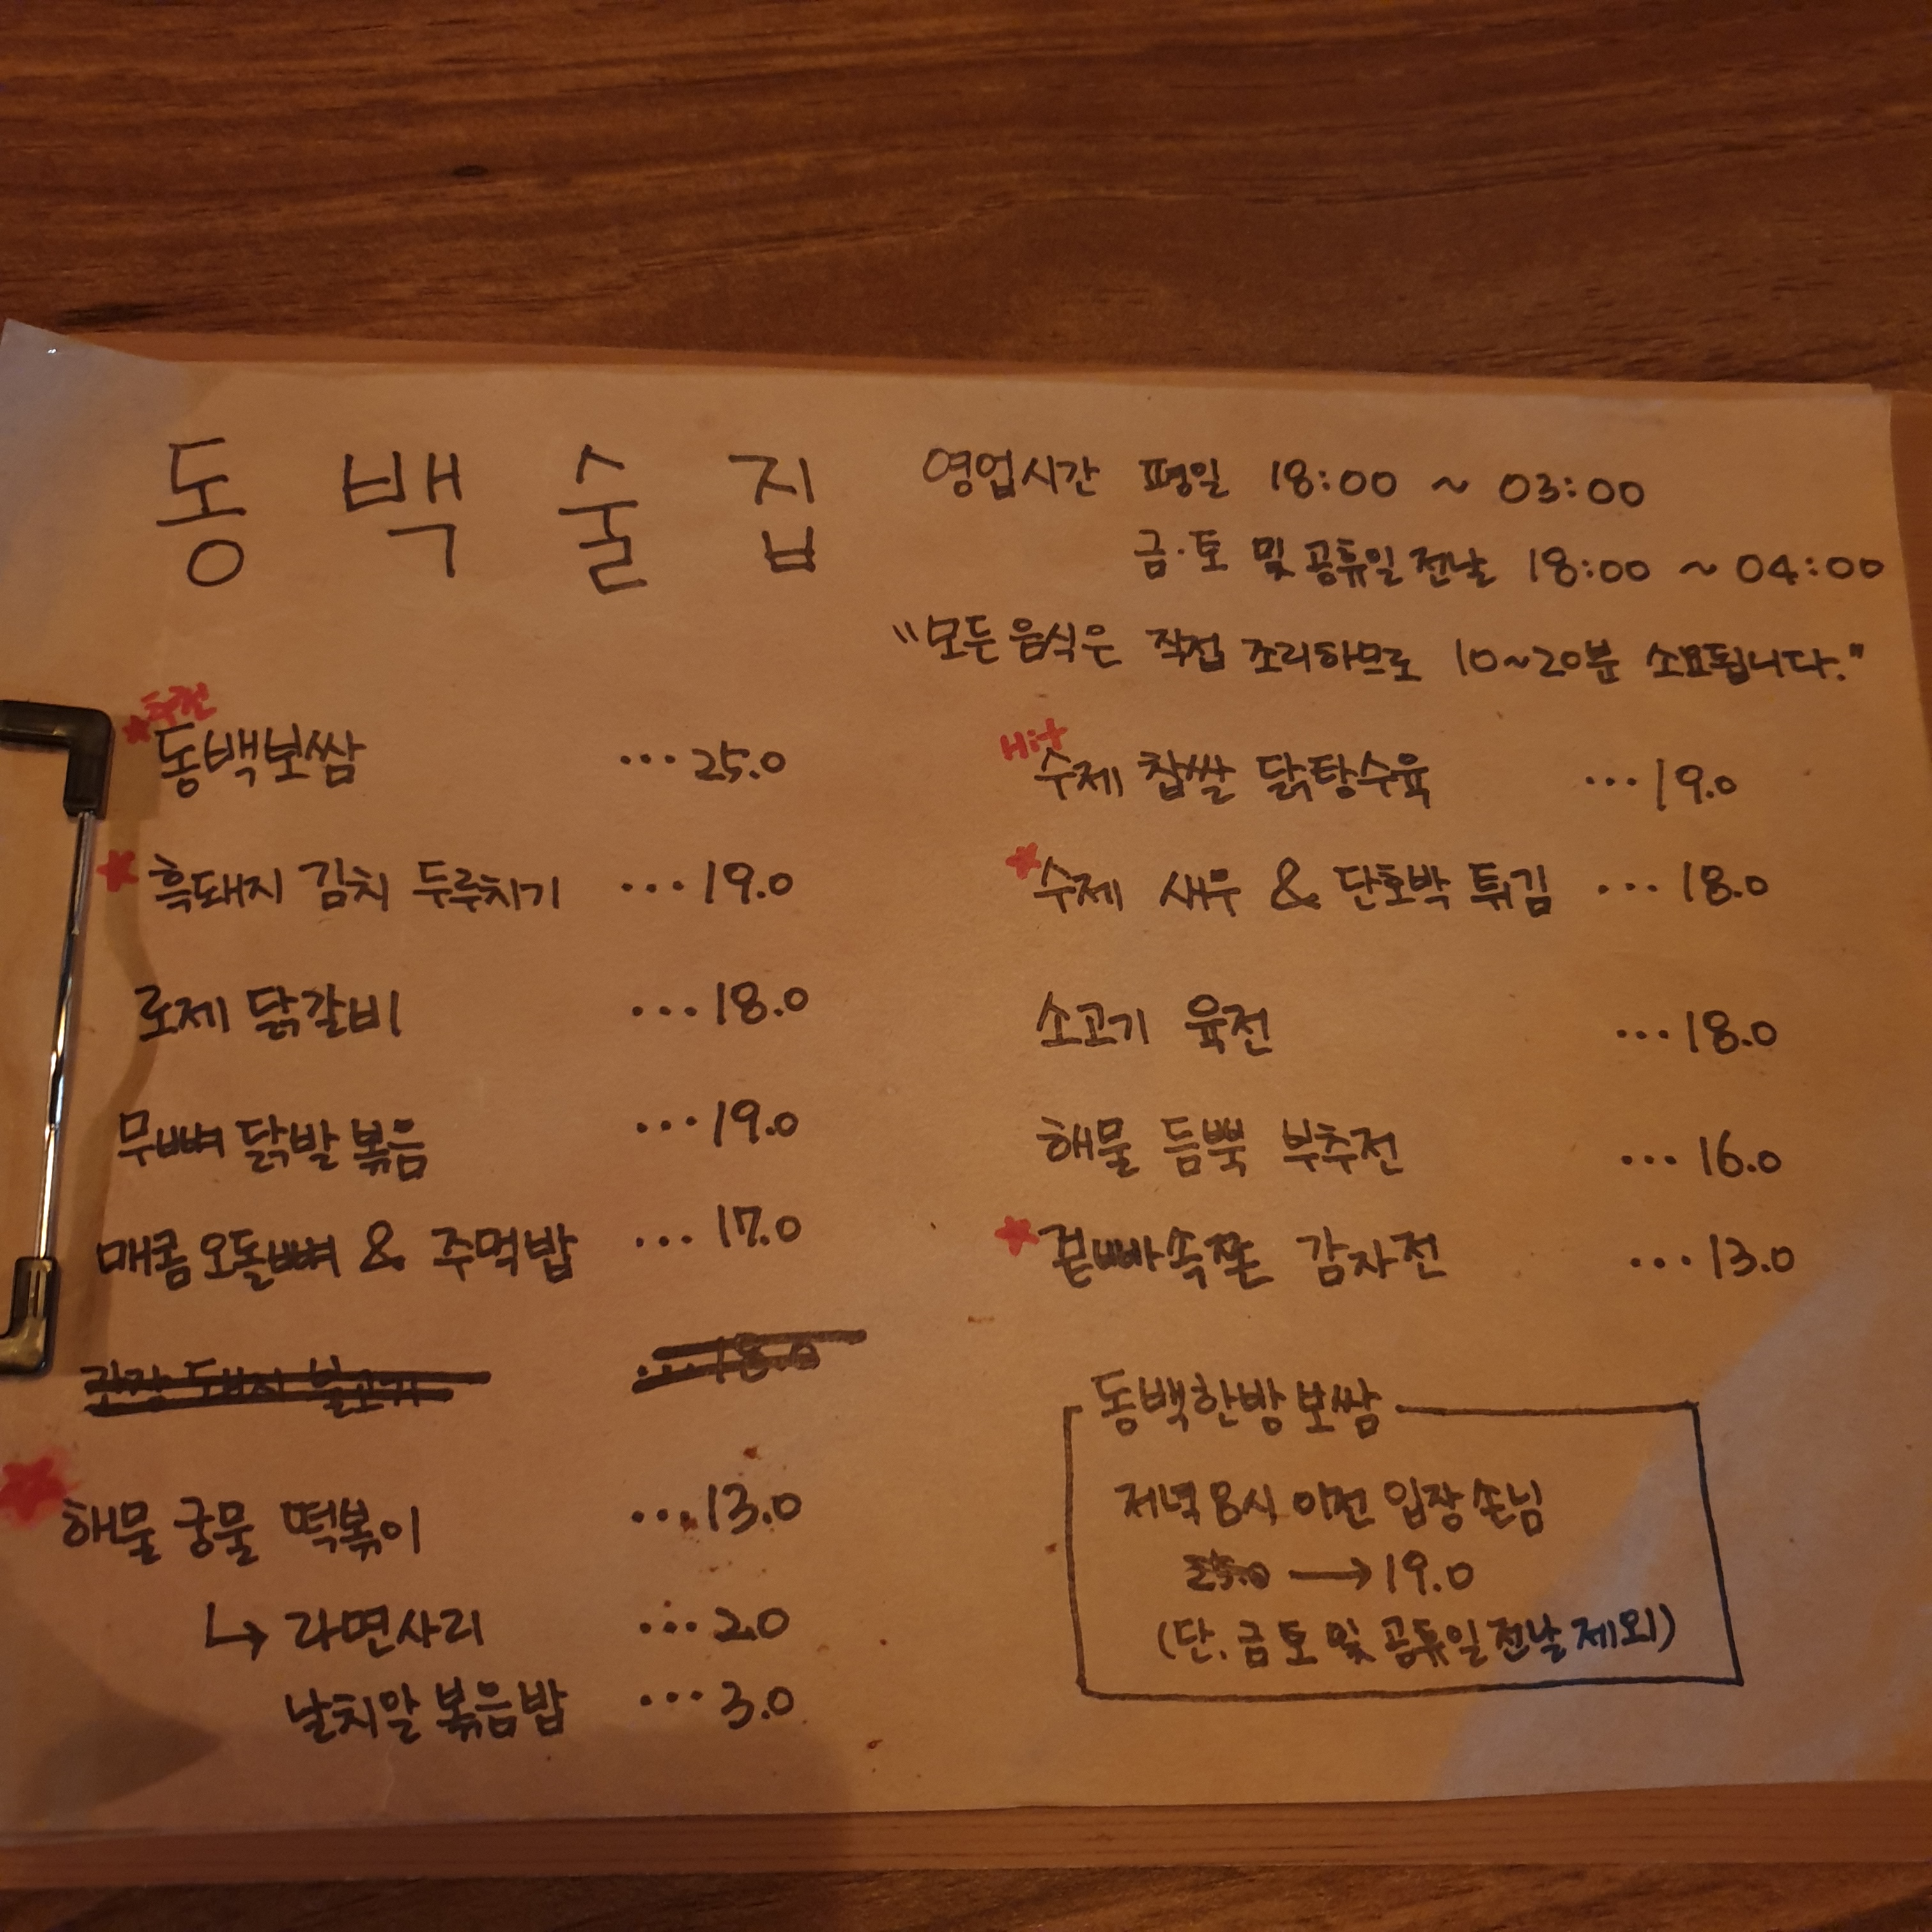 동백술집
영업시간 평일 18:00 ~ 03:00
금·토 및 공휴일 전날 18:00 ~ 04:00
"모든 음식은 직접 조리하므로 10~20분 소요됩니다."
추천
동백보쌈 ...25.0
흑돼지 김치 두루치기 ...19.0
로제 닭갈비 ...18.0
무뼈 닭발 볶음 ...19.0
매콤 오돌뼈 & 주먹밥 ...17.0
해물 궁물 떡볶이 ...13.0
↳ 라면사리 ...2.0
날치알 볶음밥 ...3.0
Hit
수제 찹쌀 닭탕수육 ...19.0
수제 새우 & 단호박 튀김 ...18.0
소고기 육전 ...18.0
해물 듬뿍 부추전 ...16.0
겉빠속쫀 감자전 ...13.0
동백한방보쌈
저녁 8시 이전 입장 손님
25.0 → 19.0
(단, 금 토 및 공휴일 전날 제외)